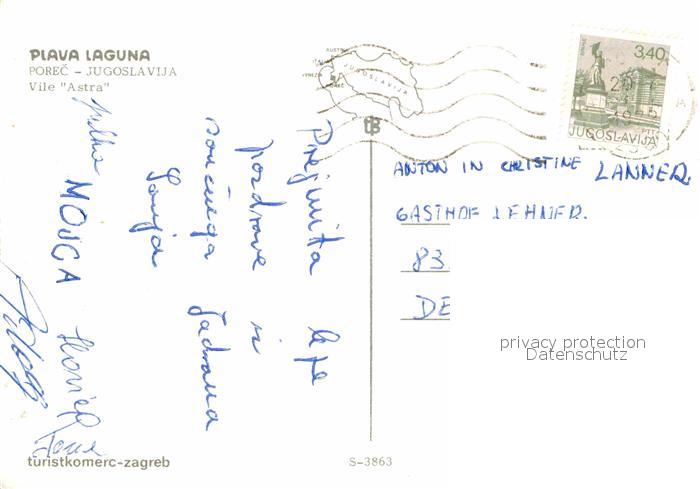 PLAVA LAGUNA
POREČ – JUGOSLAVIJA
Vile "Astra"
JUGOSLAVIJA
POREČ
3,40
JUGOSLAVIJA
ANTON IN CHRISTINE LANNER
GASTHOF LEHNER.
83
DE
privacy protection
Datenschutz
Prejmita lepe
pozdrave iz
sončnega Jadrana
Sonja
MOJCA
turistkomerc-zagreb
S-3863